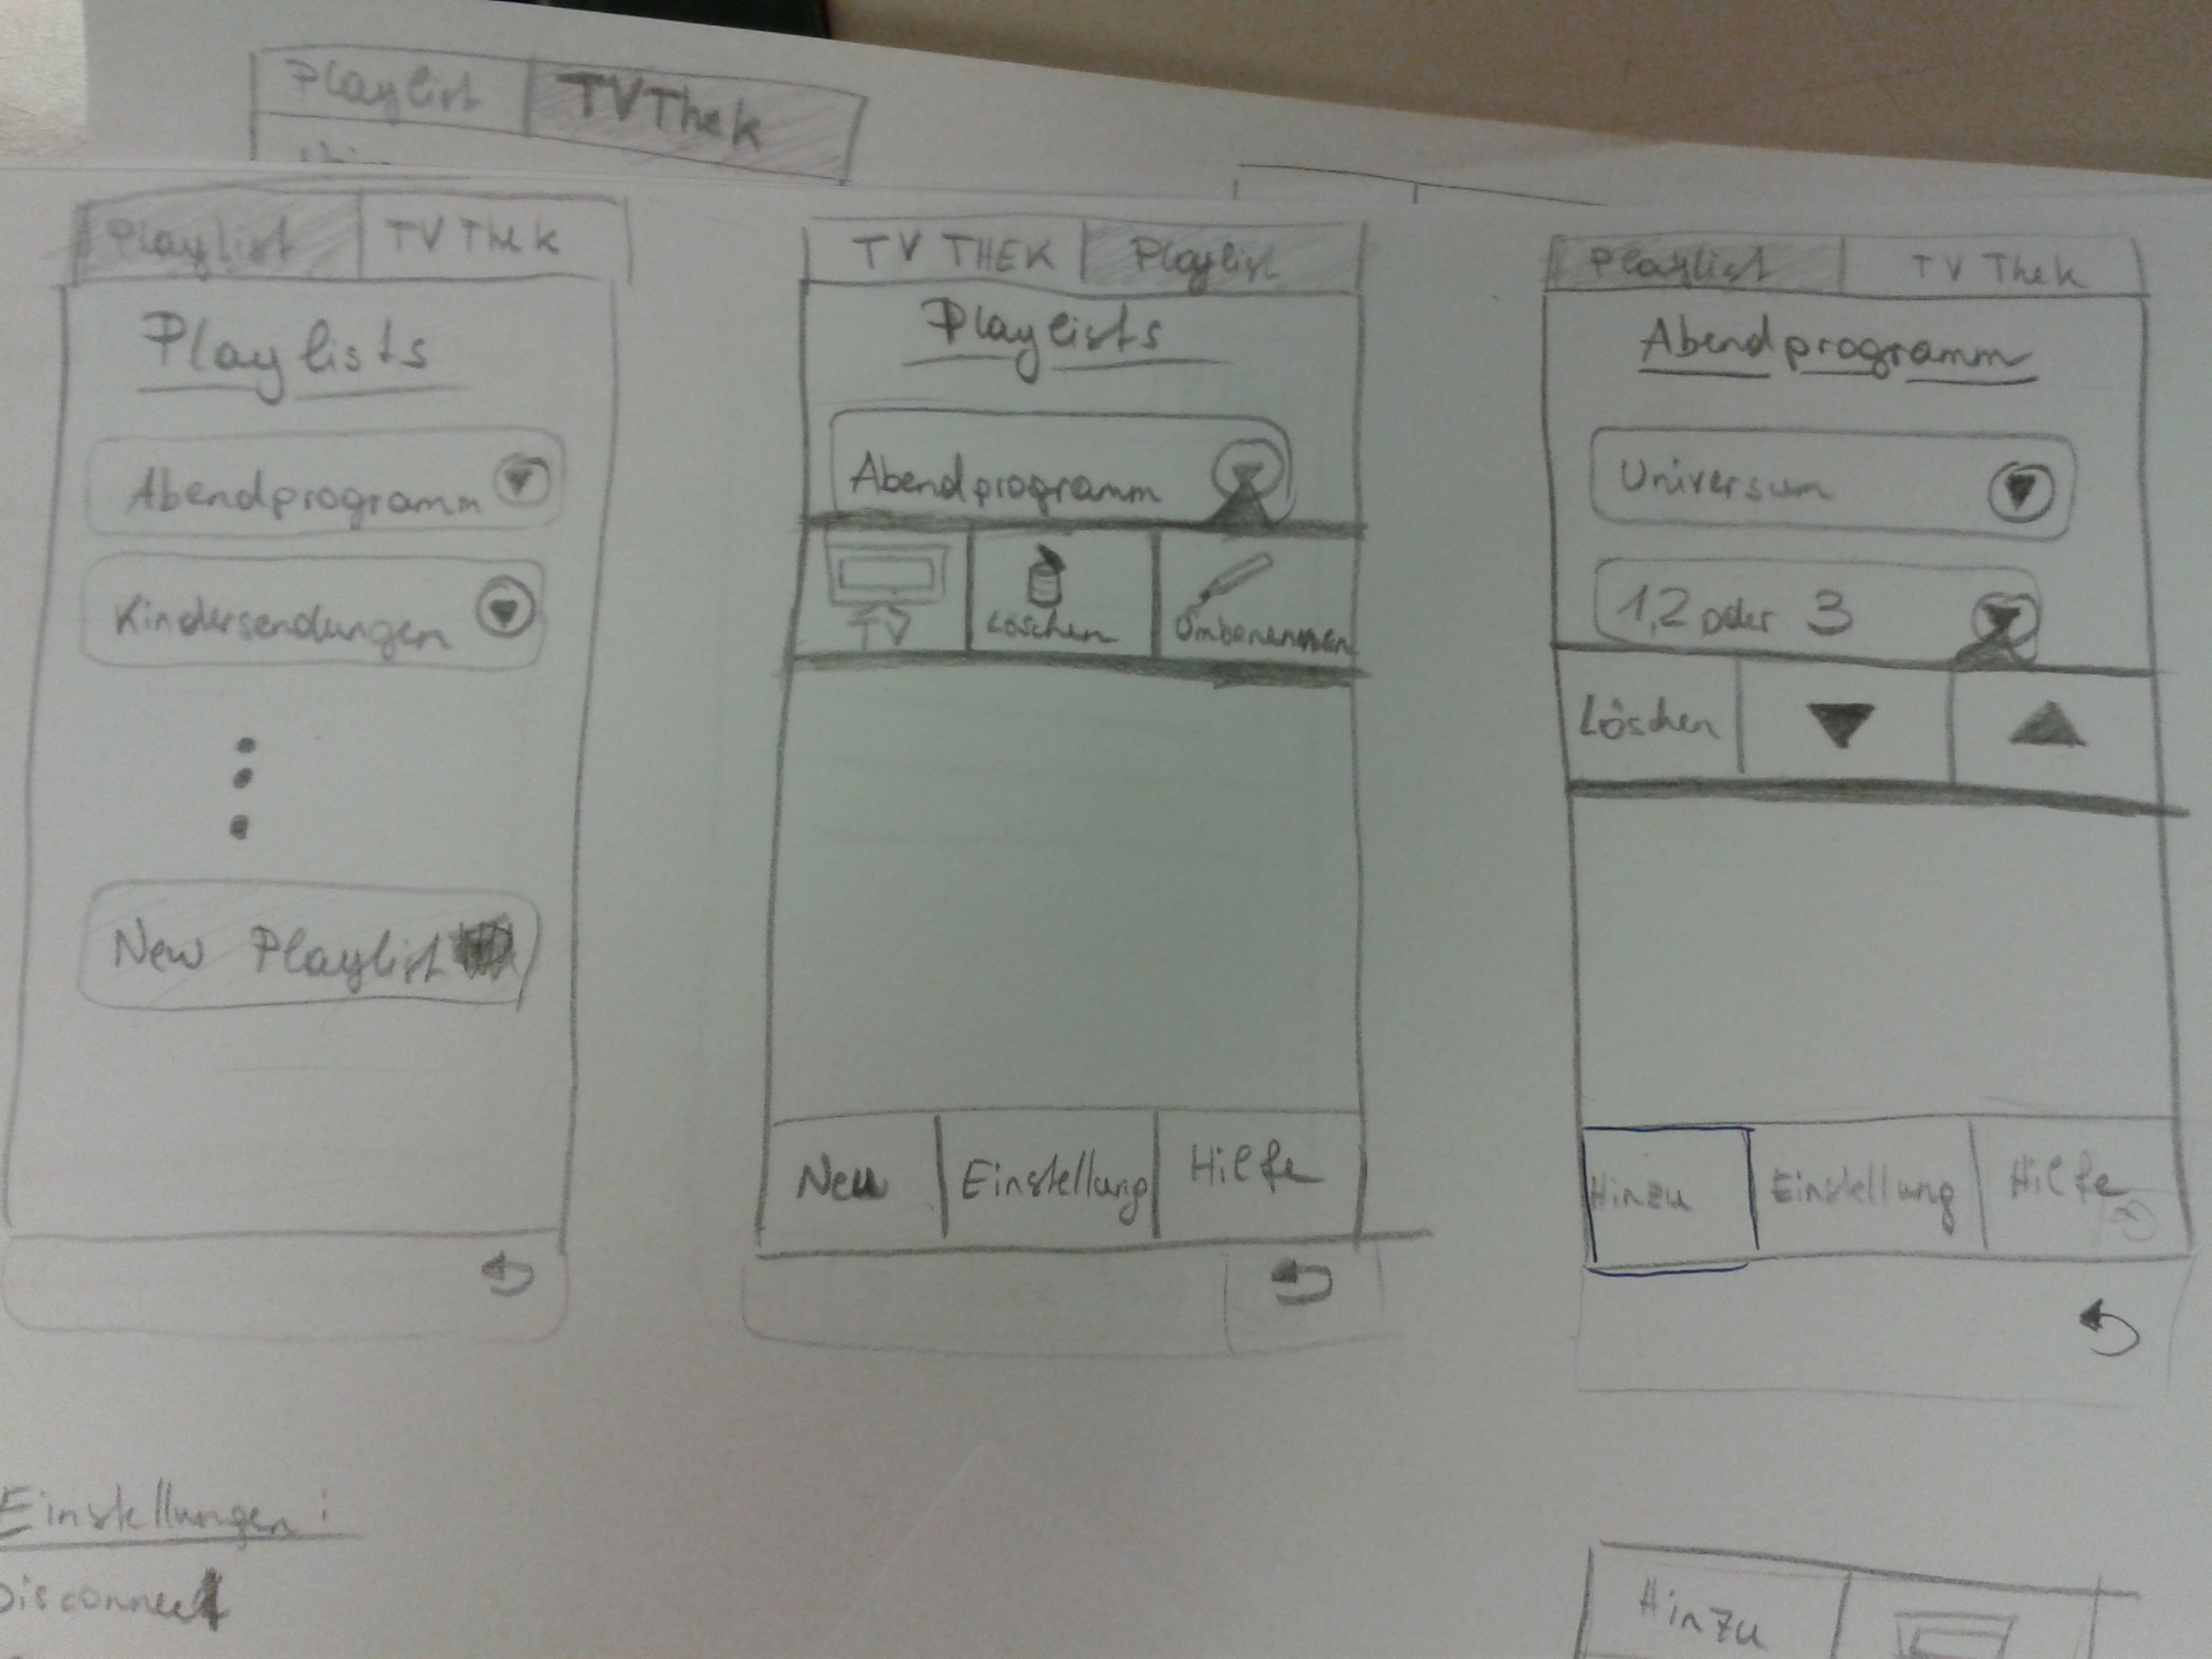 Playlist TVThek
Playlist TV Thek
Playlists
Abendprogramm
Kindersendungen
New Playlist
TV THEK Playlist
Playlists
Abendprogramm
TV Löschen Umbenennen
Neu Einstellung Hilfe
Playlist TV Thek
Abendprogramm
Universum
1,2 oder 3
Löschen
Hinzu Einstellung Hilfe
Einstellungen:
Disconnect
Hinzu